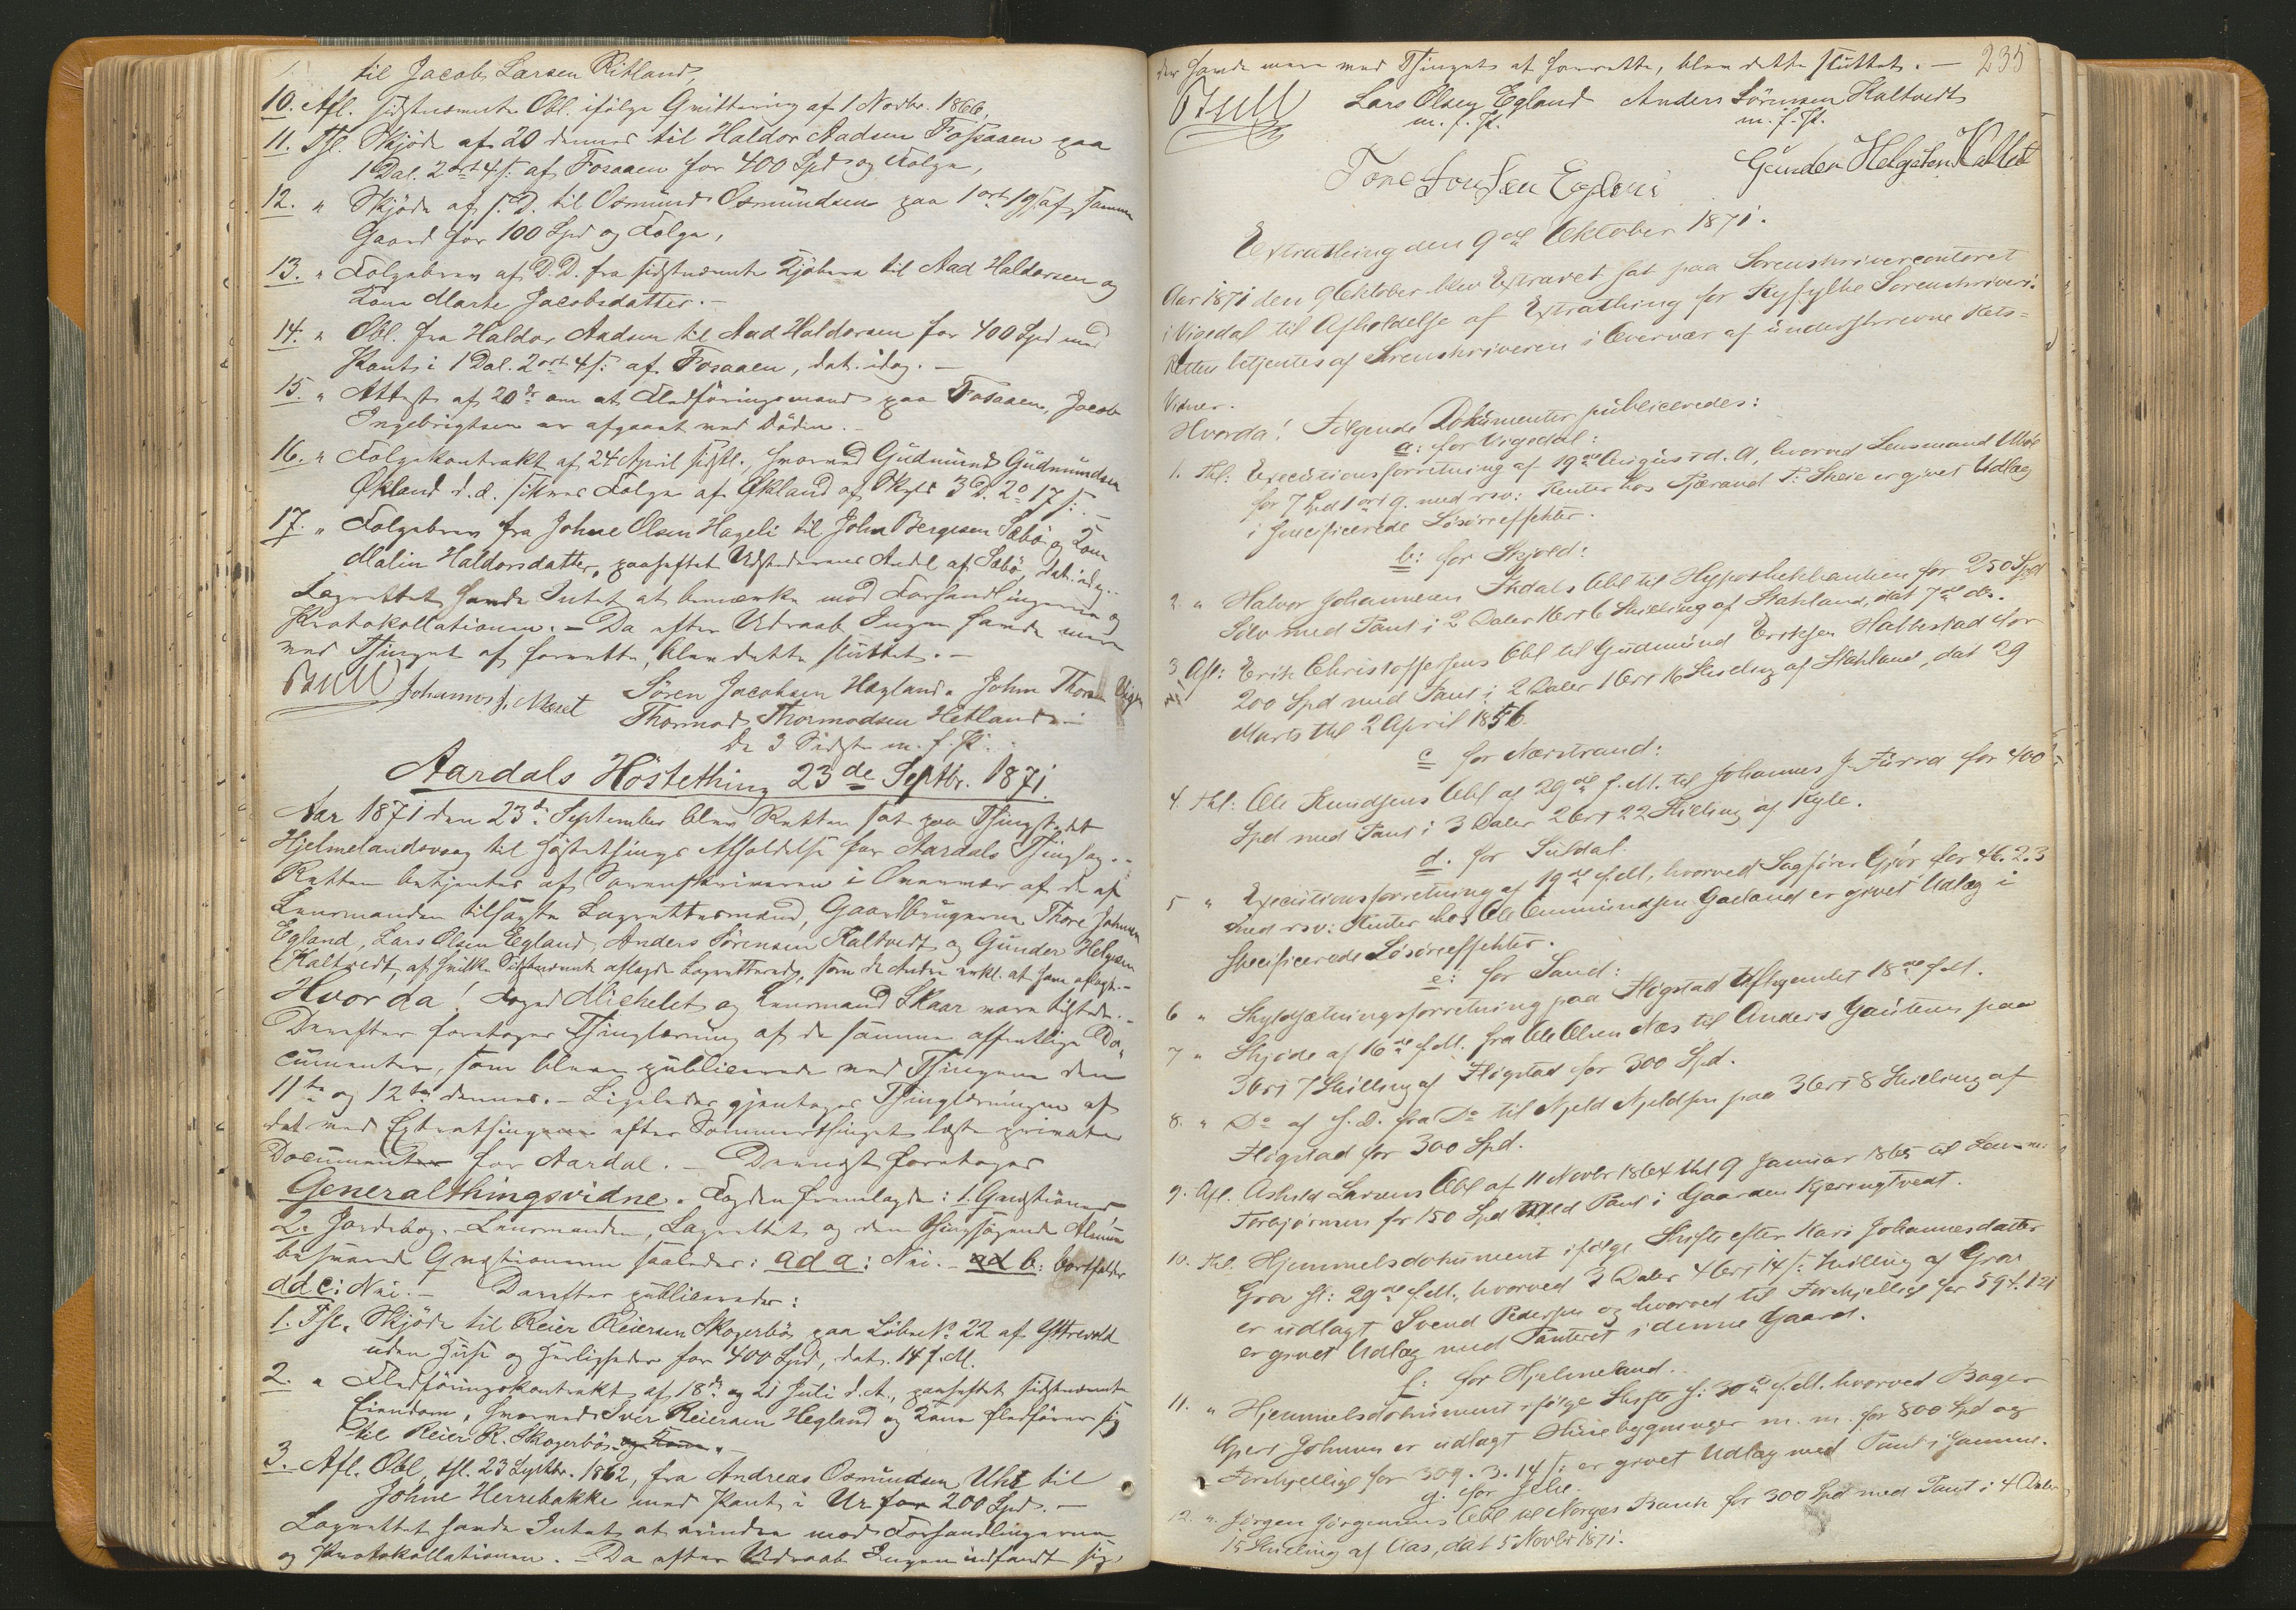 til Jacob Larsen Ritland,
10. Afl. sidstnævnte Obl. ifølge Qvittering af 1 Novbr. 1866,
11. Thl. Skjøde af 20 dennes til Haldor Aadsen Fosaaen paa
1 Dal. 2 ort 4 s: af Fosaaen for 400 Spd og Folge,
12. " Skjøde af s. D. til Osmund Osmundsen paa 1 ort 19 s af samme
Gaard for 100 Spd og Folge,
13. " Folgebrev af D. D. fra sidstnævnte Kjøbere til Aad Haldorsen og
Kone Marte Jacobsdatter. —
14. " Obl. fra Haldor Aadsen til Aad Haldorsen for 400 Spd med
Pant i 1 Dal. 2 ort 4 s: af Fosaaen, dat. idag. —
15. " Attest af 20de om at Fledføringsmand paa Fosaaen, Jacob
Ingebrigtsen er afgaaet ved Døden. —
16. " Folgekontrakt af 24 April sidstl., hvorved Gudmund Gudmundsen
Økland d. æ. sikres Folge af Økland af Skyld 3 D. 2 o 17 s: —
17. " Folgebrev fra Johne Olsen Hageli til John Bergesen Sæbø og Kone
Malin Haldorsdatter, paaheftet Udstederens Andel af Sæbø, dat. idag.
Lagrettet havde Intet at bemærke mod Forhandlingerne og
Protokollationen. — Da efter Udraab Ingen havde mere
ved Thinget at forrette, blev dette sluttet. —
Bull Johannes J. Søren Jacobsen Hagland. John Thorsen
Thormod Thormodsen Hetland. —
De 3 Sidste m. f. P.
Aardals Høstething 23de Septbr. 1871.
Aar 1871 den 23de September blev Retten sat paa Thingstedet
Hjelmelandsvaag til Høstethings Afholdelse for Aardals Thinglag. —
Retten betjentes af Sorenskriveren i Overvær af de af
Lensmanden tilsagte Lagrettesmænd, Gaardbrugerne Thore Johnsen
Egland, Lars Olsen Egland, Anders Sørensen Kaltvedt og Gunder Helgesen
Kaltvedt, af hvilke Sidstnævnte aflagde Lagretteed, som de Andre erkl. at have aflagt. —
Hvorda! Foged Michelet og Lensmand Skaar vare tilstede. —
Derefter foretoges Thinglæsning af de samme offentlige Do-
cumenter, som bleve publicerede ved Thingene den
11te og 12te dennes. — Ligeledes gjentoges Thinglæsningen af
det ved Extrathingene efter Sommerthinget læste private
Documenter for Aardal. — Dernæst foretoges
Generalthingsvidne. Fogden fremlagde: 1. Qvæstioner
2. Jordebog. — Lensmanden, Lagrettet og den thingsøgende Almue
besvarede Qvæstionerne saaledes: ad a: Nei. — ad b: bortfalder
ad c: Nei. — Derefter publiceredes:
1. Thl. Skjøde til Reier Reiersen Skogerbø paa Løbe No 22 af Yttrevold
uden Huse og Herligheder for 400 Spd, dat. 14 f. M.
2. " Fledføringskontrakt af 18de og 21 Juli d. A., paaheftet sidstnævnte
Eiendom, hvorved Iver Reiersen Hegland og Kone fledfører sig
til Reier R. Skogerbø og Kone. —
3. Afl. Obl., thl. 23 Septbr. 1862, fra Andreas Osmundsen Uhr til
Johne Herrebakke med Pant i Ur for 200 Spd. —
Lagrettet havde Intet at erindre mod Forhandlingerne
og Protokollationen. — Da efter Udraab Ingen indfandt sig,
235
der havde mere ved Thinget at forrette, blev dette sluttet. —
Bull Lars Olsen Egland Anders Sörensen Kaltvedt
m. f. P. m. f. P.
Tore Jonsen Egland Gunder Helgesen Kaltvet
Extrathing den 9de Oktober 1871.
Aar 1871 den 9 Oktober blev Extraret sat paa Sorenskrivercontoret
i Vigedal til Afholdelse af Extrathing for Ryfylke Sorenskriveri.
Retten betjentes af Sorenskriveren i Overvær af underskrevne Rets-
Vidner.
Hvorda! Følgende Dokumenter publiceredes:
a: for Vigedal:
1. Thl: Executionsforretning af 19de August d. A, hvorved Lensmand
for 7 Spd 1 ort 9. med rsv: Renter hos Tjerand T: Skeie er givet Udlæg
i specificerede Løsøreeffekter.
b: for Skjold:
2. " Halvor Johannesen Thdals Obl til Hypothekbanken for 250 Spd
Sølv med Pant i 2 Daler 1 Ort 6 Skilling af Stakland, dat 7de ds.
3 Afl: Erik Christoffersens Obl til Gudmund Eriksen Hallestad for
200 Spd med Pant i 2 Daler 1 Ort 16 Skilling af Stakland, dat 29
Marts thl 2 April 1856.
c for Nærstrand:
4. Thl: Ole Knudsens Obl af 29de f. M. til Johannes J. Furra for 400
Spd med Pant i 3 Daler 2 Ort 22 Skilling af Kyle.
d. for Suldal.
5 " Executionsforretning af 19de f. M, hvorved Sagfører Gjør for 46. 2. 3
med rsv: Renter hos Ole Omundsen Gaeland er givet Udlæg i
specificerede Løsøreeffekter.
e: for Sand:
6 " Skyldsætningsforretning paa Fløgstad Afhjemlet 18de f. M.
7 " Skjøde af 16de f. M. fra Ole Olsen Næs til Anders Gautesen paa
3 Ort 7 Skilling af Fløgstad for 300 Spd.
8. " Do af s. D. fra Do til Njeld Njeldsen paa 3 Ort 8 Skilling af
Fløgstad for 300 Spd.
9. Afl. Askild Larsens Obl af 11 Novbr 1864 thl 9 Januar 1865 til Lensm:
Torbjørnsen for 150 Spd med Pant i Gaarden Kjerrugtvedt.
10. Thl. Hjemmelsdokument ifølge Skifte efter Kari Johannesdatter
Grov sl: 29de f. M., hvorved 3 Daler 4 Ort 14 s: Skilling af Grov
er udlagt Svend Pedersen og hvorved til Forskjellige for 594. 1 21
er givet Udlæg med Panteret i denne Gaard.
f: for Hjelmeland.
11. " Hjemmelsdokument ifølge Skifte s: 30de f. M. hvorved Bager
Gjert Johnsen er udlagt Husebygninger m. m. for 800 Spd og
Forskjellige for 309. 3. 14 s: er givet Udlæg med Pant i Samme.
g: for Jelse.
12. " Jørgen Jørgensens Obl til Norges Bank for 300 Spd med Pant i 4 Daler
15 Skilling af Aas, dat 5 Novbr 1871.